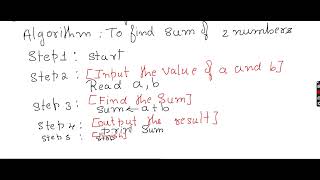 Algorithm : To find sum of 2 numbers
Step 1 : start
Step 2 : [Input the value of a and b]
Read a, b
Step 3 : [Find the Sum]
Sum ← a+b
Step 4 : [output the result]
print Sum
Step 5 :